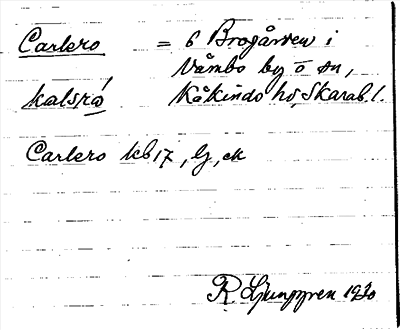 Carlsro = 6 Brogården i
Våmbo by o sn,
kalsro Kåkinds hd, Skarab. l.
Carlsro kb 17, lj, ek
R Ljunggren 1930